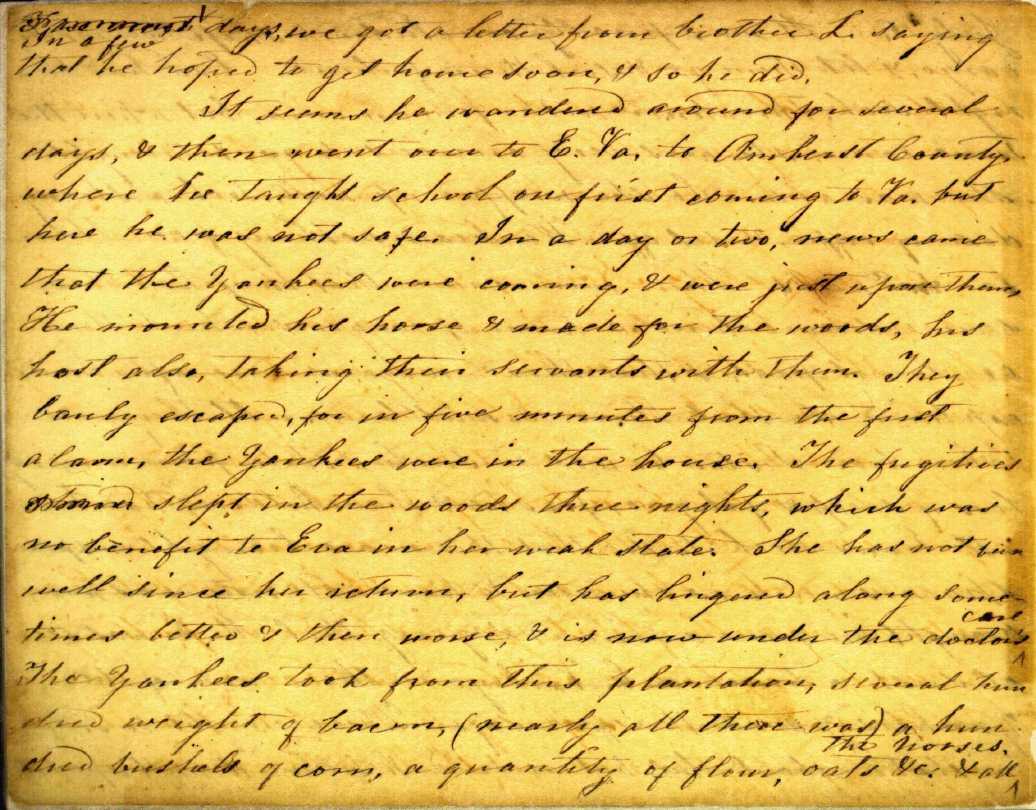 In a few days, we got a letter from brother L. saying
that he hoped to get home soon, & so he did.
It seems he wandered around for several
days, & then went over to E. Va. to Amherst County,
where he taught school on first coming to Va. but
here he was not safe. In a day or two, news came
that the Yankees were coming, & were just upon them,
He mounted his horse & made for the woods, his
host also, taking their servants with them. They
barely escaped, for in five minutes from the first
alarm, the Yankees were in the house. The fugitives
slept in the woods three nights, which was
no benefit to Eva in her weak state. She has not been
well since her return, but has lingered along some-
times better & then worse, & is now under the doctor's care
The Yankees took from this plantation, several hun
dred weight of bacon, (nearly all there was) a hun
dred bushels of corn, a quantity of flour, oats &c. & all the horses.